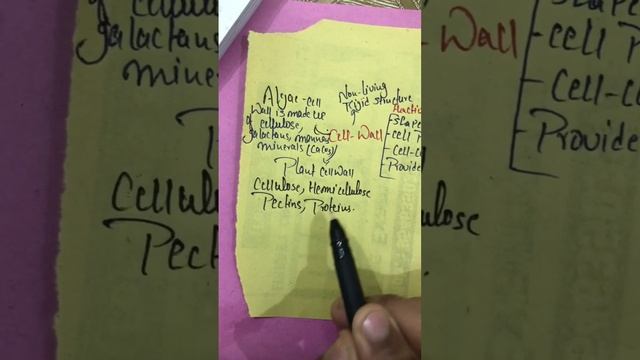 Algae-cell
Wall is made up
of cellulose,
galactans, mannans
minerals (CaCO3)
Non-living
rigid structure
Cell-Wall
Plant Cell Wall
Cellulose, Hemicellulose
Pectins, Proteins.
Functi
shape
cell P
cell-c
Provide